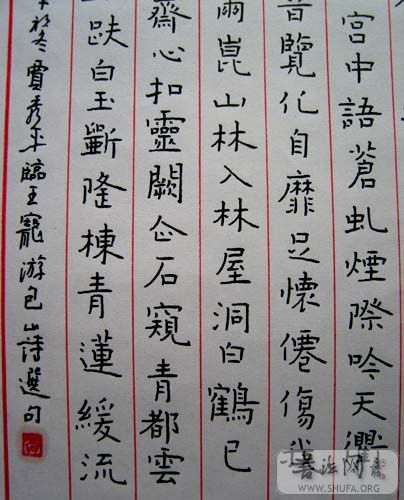 宮中語蒼虬煙際吟天興
覽化自靡足懷僊傷
崑山林入林屋洞白鶴已
齋心扣靈闕仚石窺青都雲
趺白玉斲隆棟青蓮緩流
冬賈秀玉臨王寵游包山詩選句
書法网
SHUFA.ORG